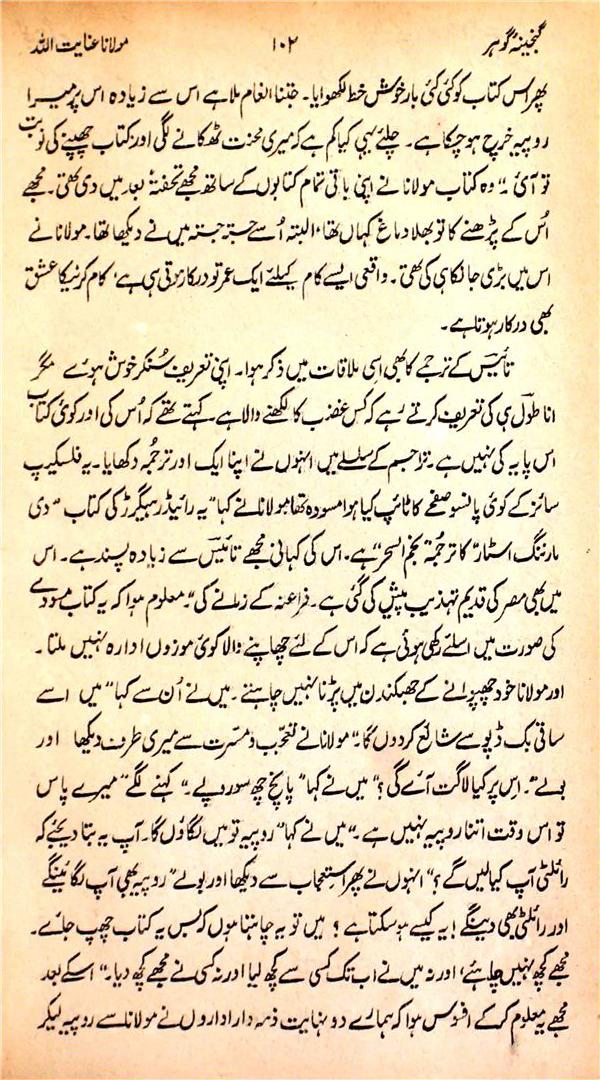 گنجینۂ گوہر ۱۰۲ مولانا عنایت اللہ
پھر اس کتاب کو کئی کئی بار خوش خط لکھوایا۔ جتنا انعام ملا ہے اس سے زیادہ اس پر میرا
روپیہ خرچ ہو چکا ہے۔ چلئے یہی کیا کم ہے کہ میری محنت ٹھکانے لگی اور کتاب چھپنے کی نوبت
تو آئی۔" وہ کتاب مولانا نے اپنی باقی تمام کتابوں کے ساتھ مجھے تحفتہً بعد میں دی تھی۔ مجھے
اُس کے پڑھنے کا تو بھلا دماغ کہاں تھا، البتہ اُسے جستہ جستہ میں نے دیکھا تھا۔ مولانا نے
اس میں بڑی جانکاہی کی تھی۔ واقعی ایسے کام کیلئے ایک عمر تو درکار ہوتی ہی ہے، کام کرنیکا عشق
بھی درکار ہوتا ہے۔
تائیس کے ترجمے کا بھی اسی ملاقات میں ذکر ہوا۔ اپنی تعریف سُنکر خوش ہوئے مگر
اناطول ہی کی تعریف کرتے رہے کہ کس غضب کا لکھنے والا ہے۔ کہتے تھے کہ اُس کی اور کوئی کتاب
اس پایہ کی نہیں ہے۔ تراجم کے سلسلے میں انہوں نے اپنا ایک اور ترجمہ دکھایا۔ یہ فلسکیپ
سائز کے کوئی پانسو صفحے کا ٹائپ کیا ہوا مسودہ تھا مولانا نے کہا "یہ رائیڈر ہیگرڈ کی کتاب "دی
مارننگ اسٹار" کا ترجمہ "نجم السحر" ہے۔ اس کی کہانی مجھے تائیس سے زیادہ پسند ہے۔ اس
میں بھی مصر کی قدیم تہذیب پیش کی گئی ہے۔ فراعنہ کے زمانے کی"۔ معلوم ہوا کہ یہ کتاب مسودے
کی صورت میں اسلئے رکھی ہوئی ہے کہ اس کے لئے چھاپنے والا کوئی موزوں ادارہ نہیں ملتا۔
اور مولانا خود چھپوانے کے جھکندن میں پڑنا نہیں چاہتے۔ میں نے اُن سے کہا "میں اسے
ساقی بک ڈپو سے شائع کردوں گا۔" مولانا نے تعجّب و مسّرت سے میری طرف دیکھا اور
بولے"۔ اِس پر کیا لاگت آئے گی؟" میں نے کہا "پانچ چھ سو روپے۔" کہنے لگے "میرے پاس
تو اس وقت اتنا روپیہ نہیں ہے۔" میں نے کہا "روپیہ تو میں لگاؤں گا۔ آپ یہ بتا دیجئے کہ
رائلٹی آپ کیا لیں گے؟" انہوں نے پھر استعجاب سے دیکھا اور بولے "روپیہ بھی آپ لگائینگے
اور رائلٹی بھی دینگے! یہ کیسے ہو سکتا ہے؟ میں تو یہ چاہتا ہوں کہ بس یہ کتاب چھپ جائے۔
مجھے کچھ نہیں چاہئے، اور نہ میں نے اب تک کسی سے کچھ لیا اور نہ کسی نے مجھے کچھ دیا۔" اسکے بعد
مجھے یہ معلوم کرکے افسوس ہوا کہ ہمارے دو نہایت ذمہ دار اداروں نے مولانا سے روپیہ لیکر